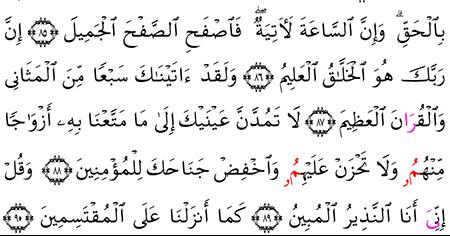 بِٱلۡحَقِّۗ وَإِنَّ ٱلسَّاعَةَ لَأٓتِيَةٞۖ فَٱصۡفَحِ ٱلصَّفۡحَ ٱلۡجَمِيلَ ٨٥ إِنَّ
رَبَّكَ هُوَ ٱلۡخَلَّٰقُ ٱلۡعَلِيمُ ٨٦ وَلَقَدۡ ءَاتَيۡنَٰكَ سَبۡعٗا مِّنَ ٱلۡمَثَانِي
وَٱلۡقُرَانَ ٱلۡعَظِيمَ ٨٧ لَا تَمُدَّنَّ عَيۡنَيۡكَ إِلَىٰ مَا مَتَّعۡنَا بِهِۦٓ أَزۡوَٰجٗا
مِّنۡهُمُۥ وَلَا تَحۡزَنۡ عَلَيۡهِمُۥ وَٱخۡفِضۡ جَنَاحَكَ لِلۡمُؤۡمِنِينَ ٨٨ وَقُلۡ
إِنِّيَ أَنَا ٱلنَّذِيرُ ٱلۡمُبِينُ ٨٩ كَمَآ أَنزَلۡنَا عَلَى ٱلۡمُقۡتَسِمِينَ ٩٠